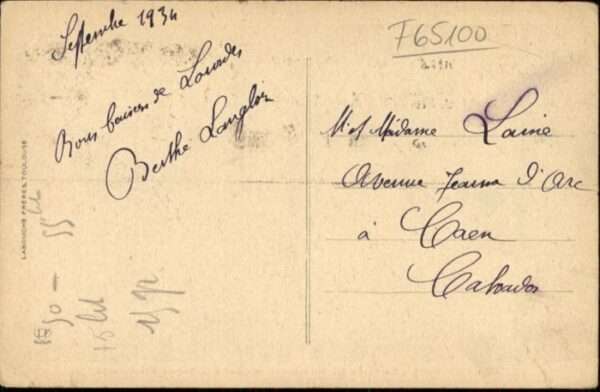 Septembre 1934
Bons baisers de Lourdes
Berthe Langlois
LABOUCHE FRÈRES, TOULOUSE
F65100
M. et Madame Laine
Avenue Jeanne d'Arc
à Caen
Calvados